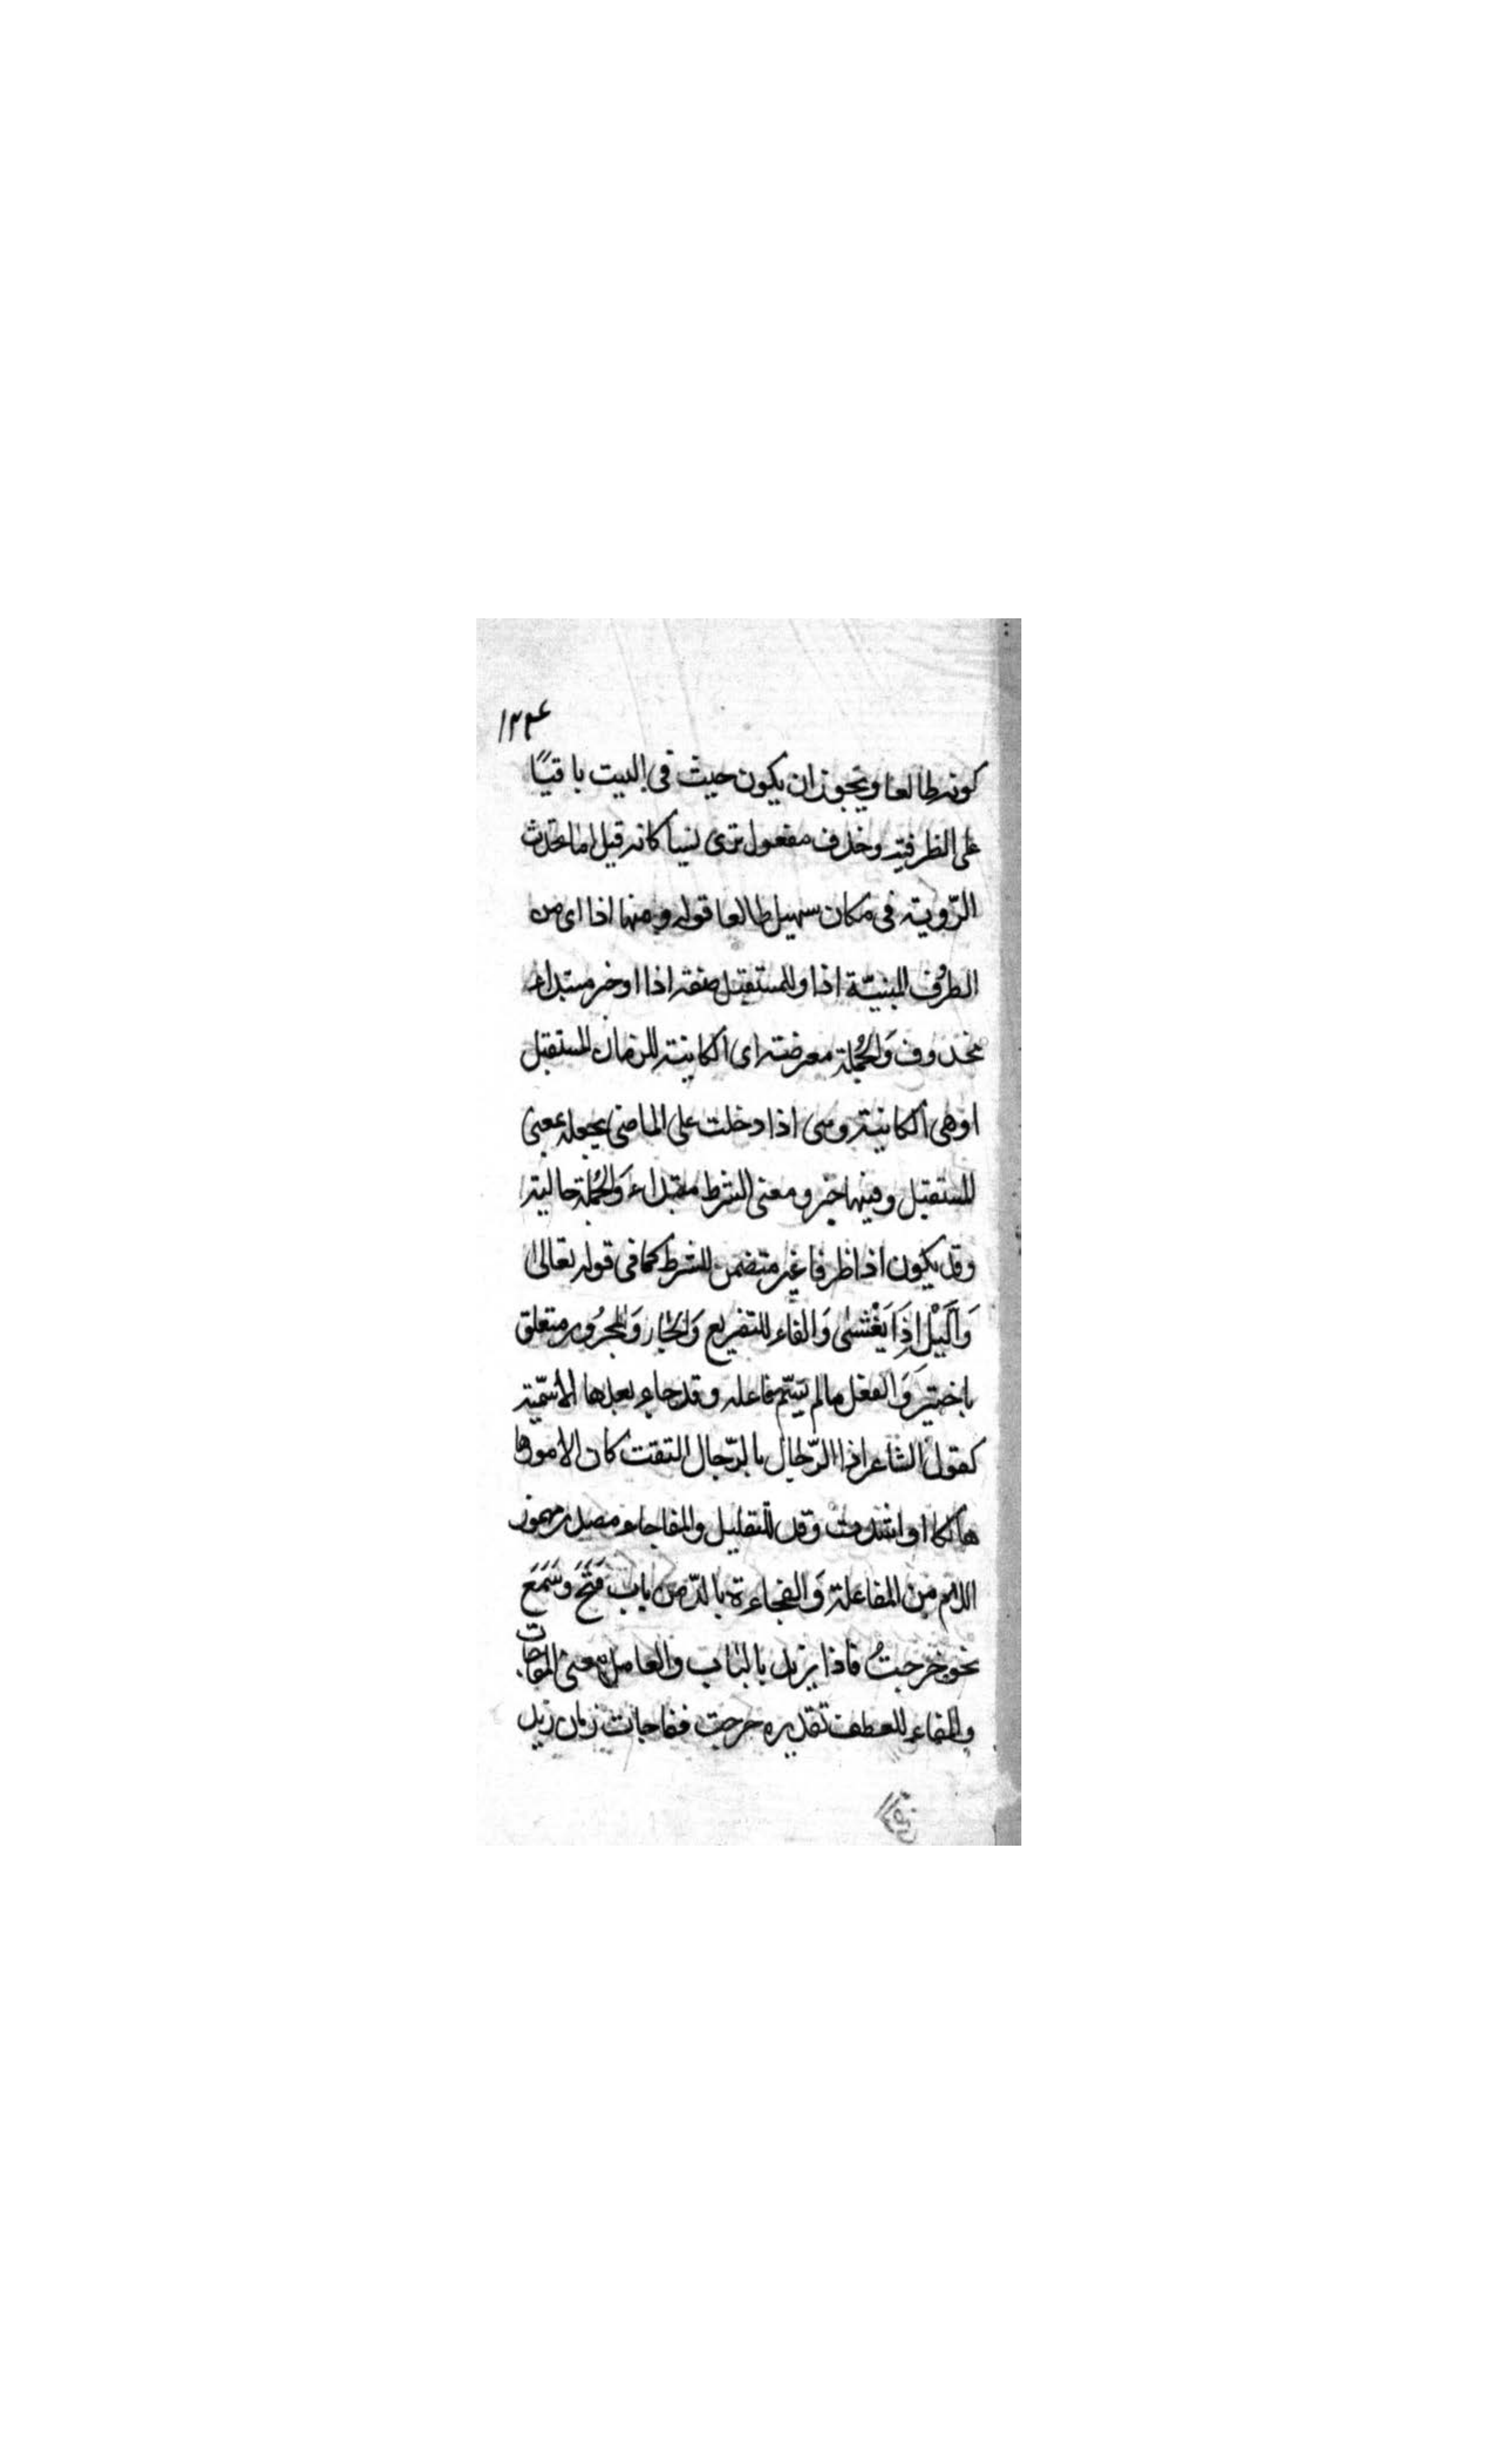 ۱۲۴
كونه طالعا ويجوز ان يكون حيث فى البيت باقيًا
على الظرفية وحذف مفعول ترى نسيا كانه قيل اما تحدث
الرّوية فى مكان سهيل طالعا قوله ومنها اذا اى من
الظروف المبنيّة اذا وللمستقبل صفة اذا او خبر مبتداء
محذوف وَالجُملة معرضة اى الكاينة للزمان المستقبل
او هى الكاينة وهى اذا دخلت على الماضى يجعله بمعنى
المستقبل وفيها خبر ومعنى الشرط مبتداء وَالجُملة حالية
وقد يكون اذا ظرفا غير متضمن للشرط كما فى قوله تعالى
وَالَّيْلِ اِذَا يَغْشىٰ وَالفاء للتفريع وَالجار وَالمجرُور متعلق
باختير وَالفعل مالم يسمّ فاعله وقد جاء بعدها الاسميّة
كقول الشاعر اذا الرّجال بالرّجال التقت كان الامور
هاكا او اشتدت وقد للتقليل والمفاجاء مصدر مهموز
اللام من المفاعلة وَالفجاءة بالمدّ من باب فَتَحَ وسَمَعَ
نحو خرجتُ فاذا زيد بالباب والعامل معنى المفاجات
والفاء للعطف تقديره خرجت ففاجات زمان زيد